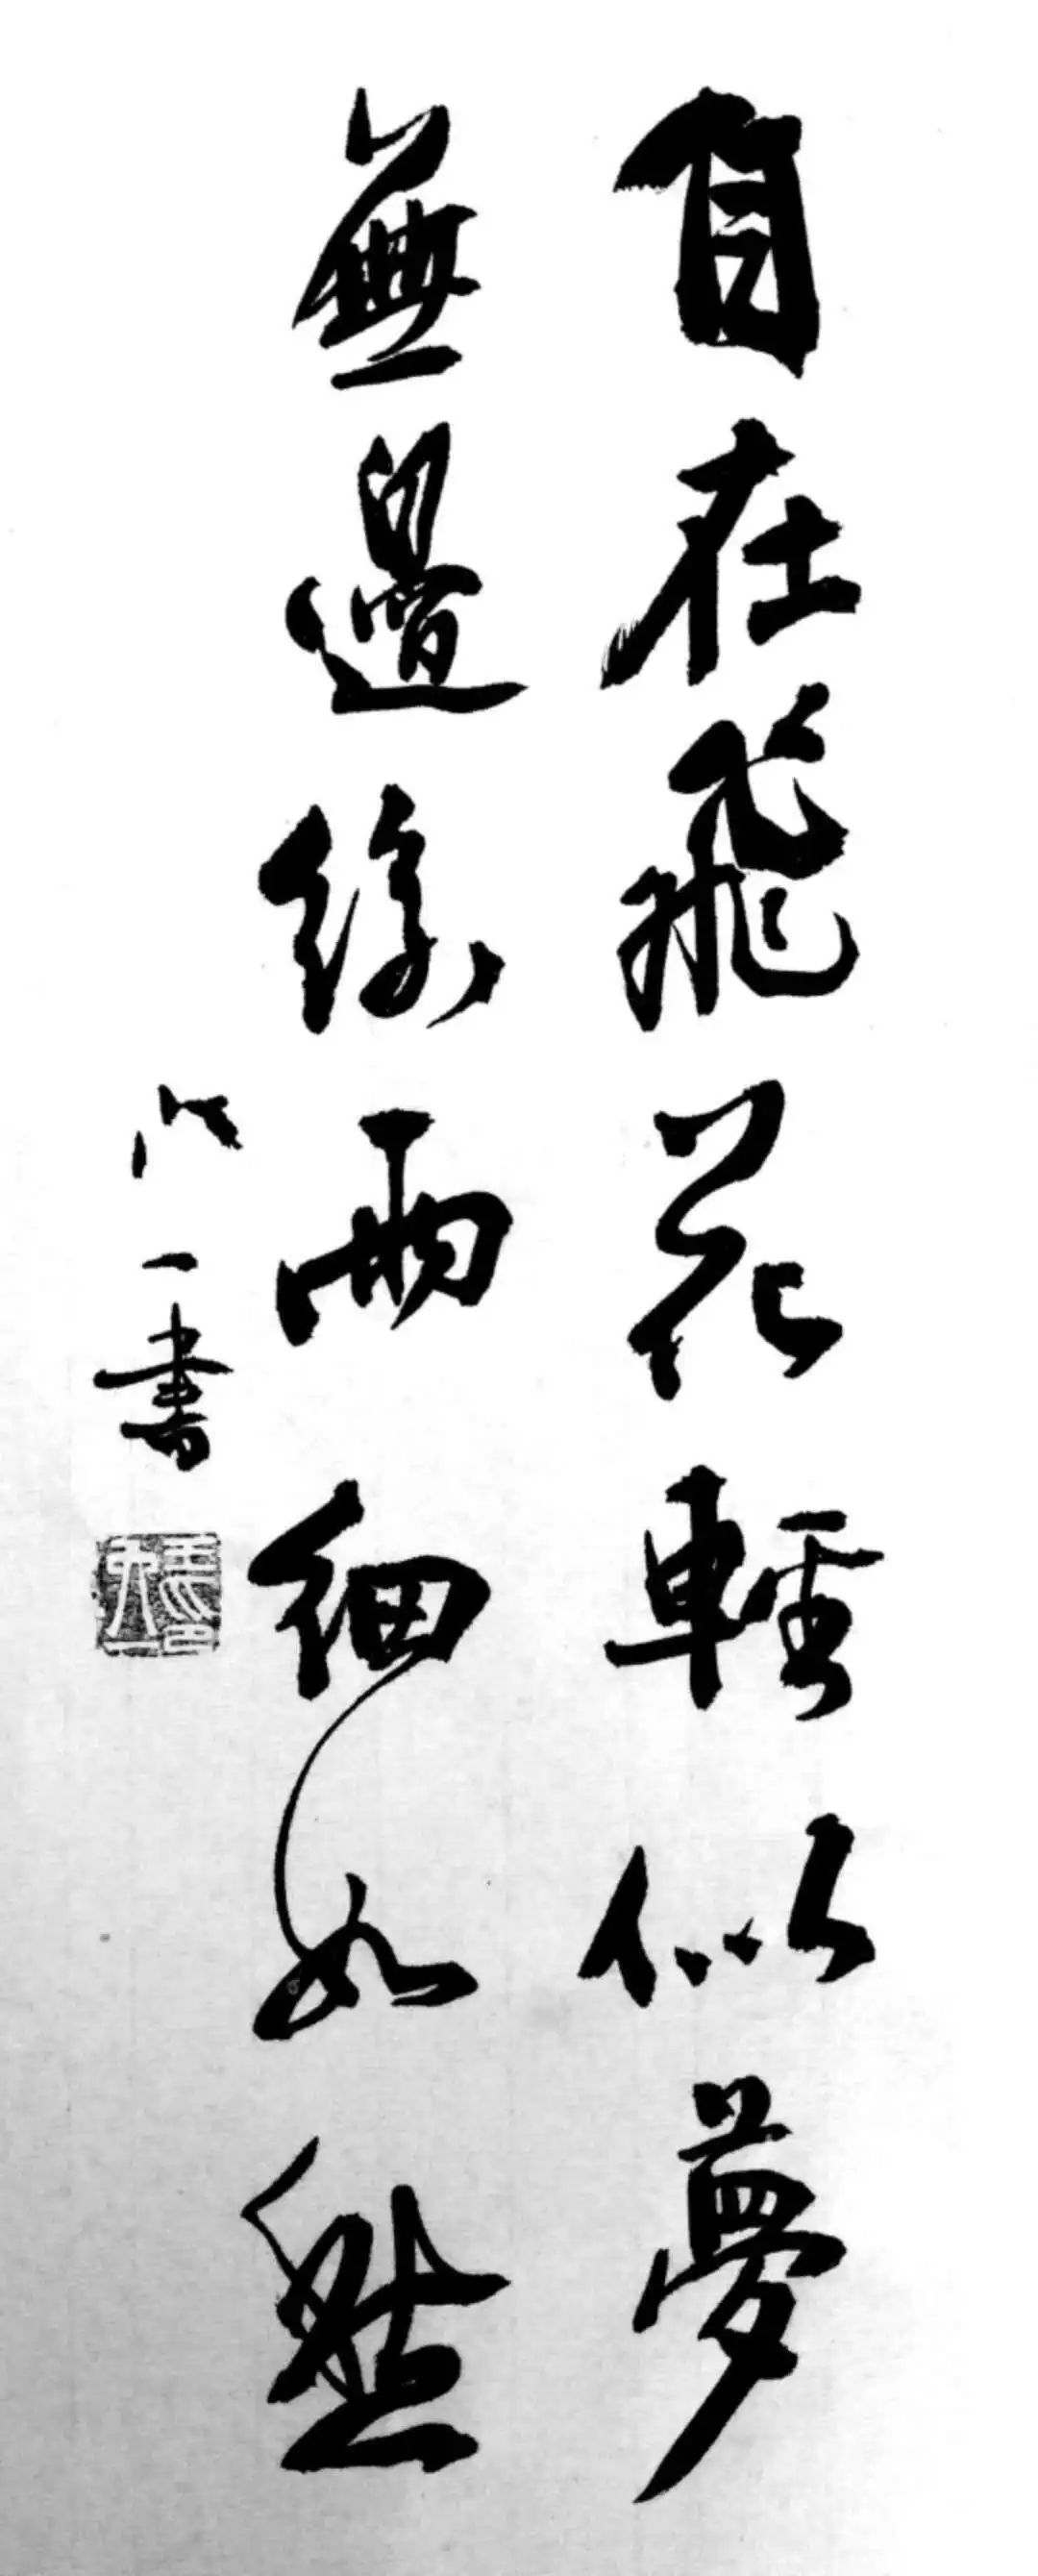 自在飛花輕似夢
無邊緣雨細如然
六一書